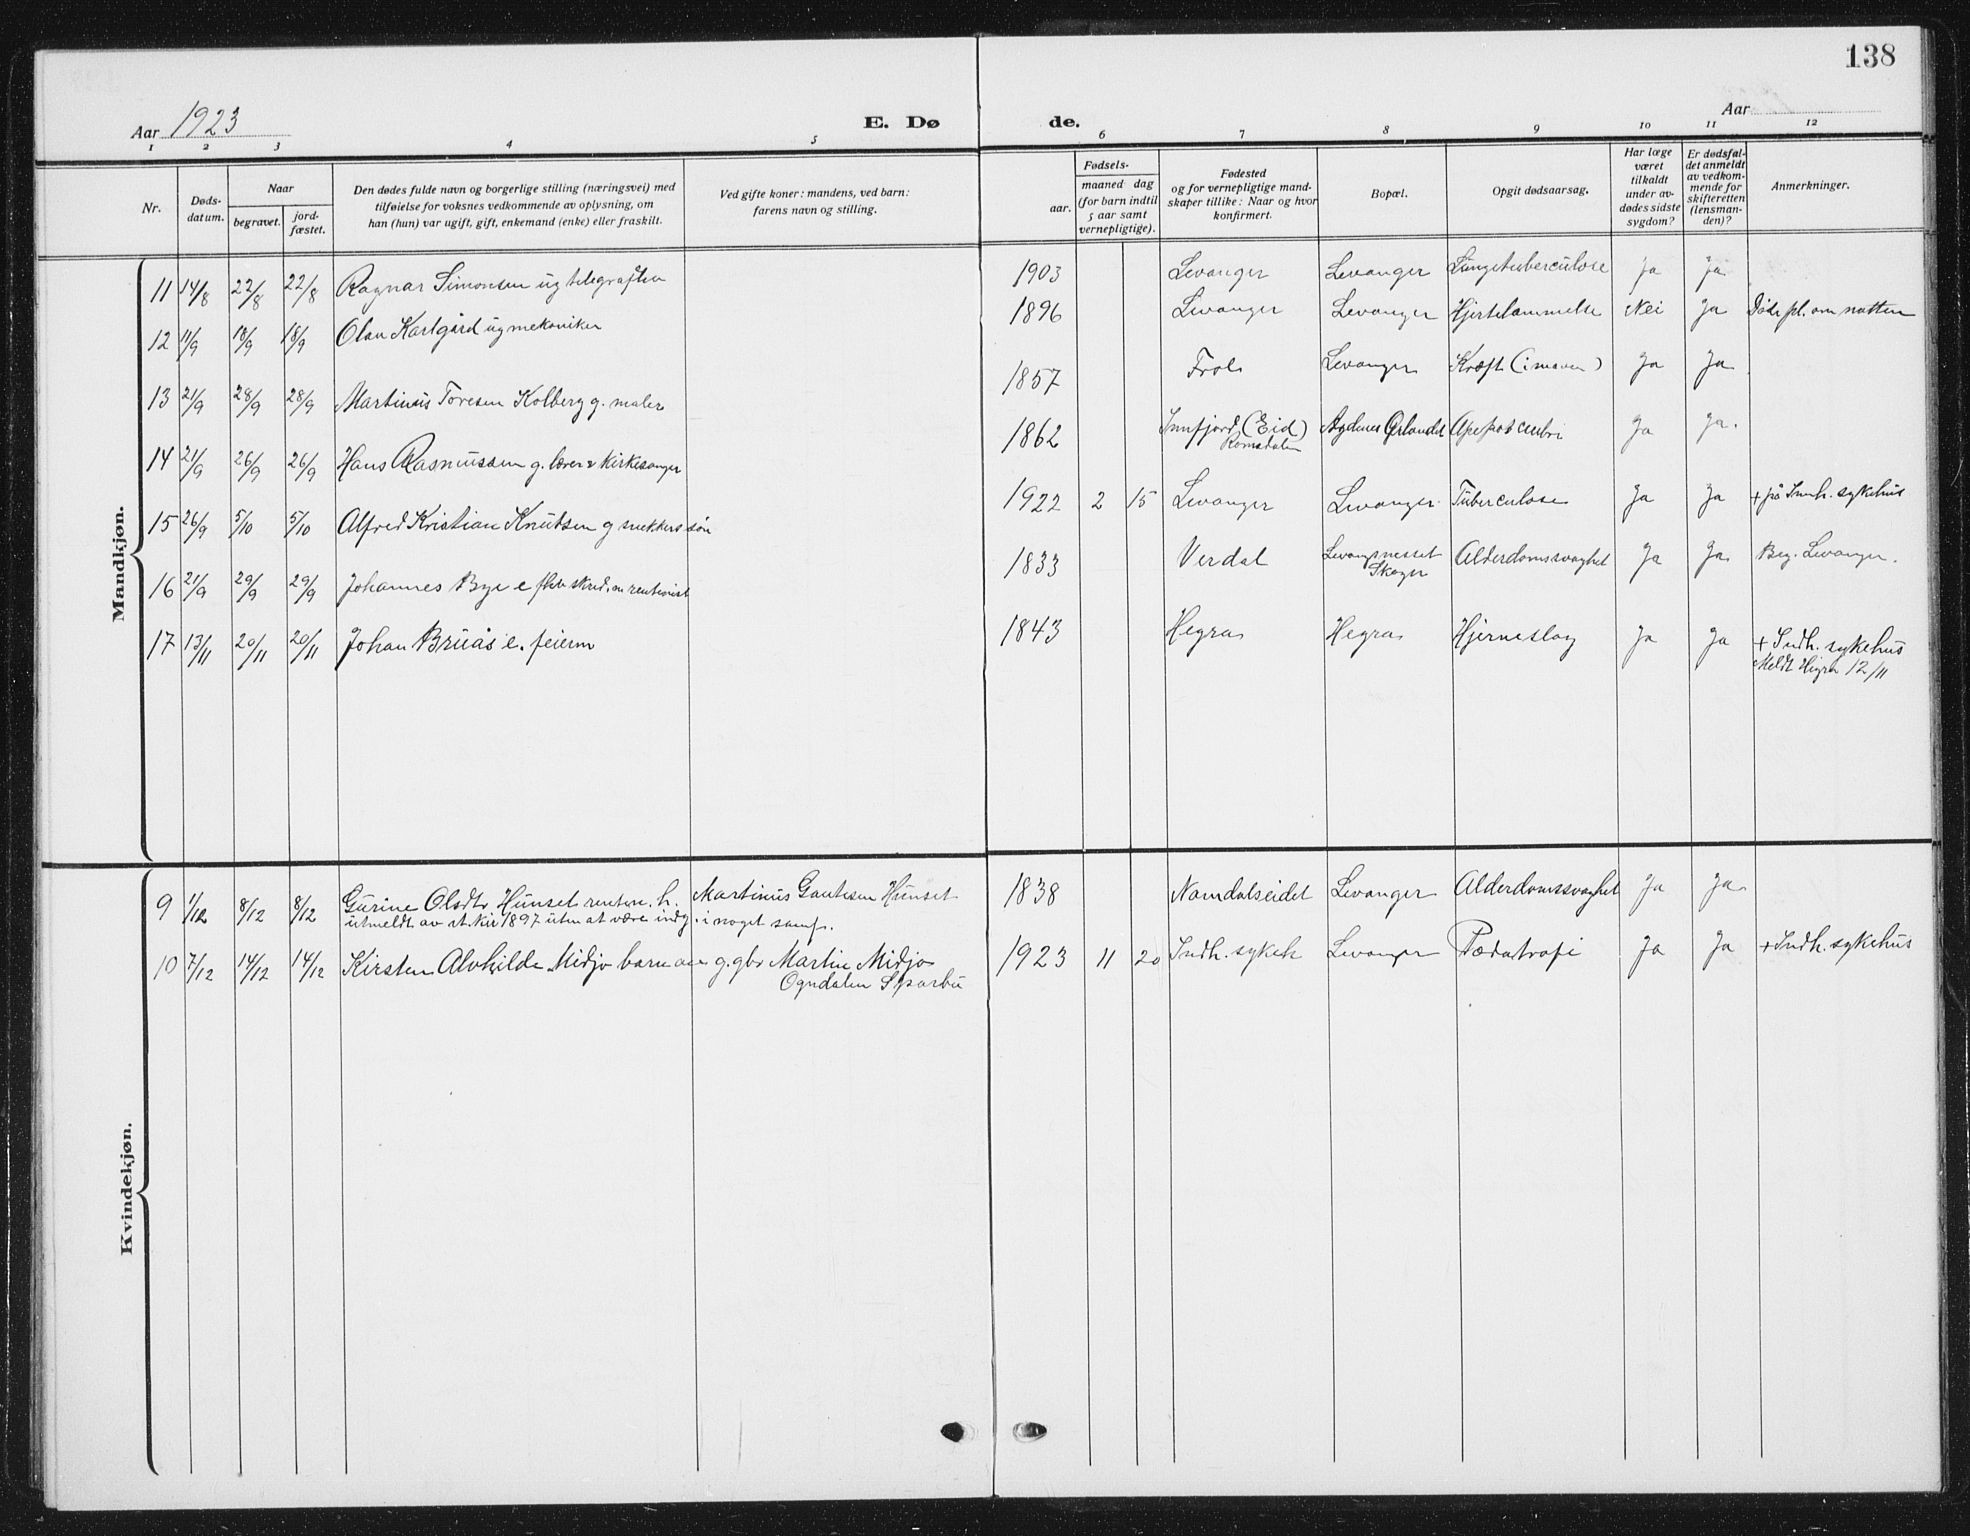 138
Aar 1923 E. Døde. Aar
1 2 3 4 5 6 7 8 9 10 11 12
Nr.
Dødsdatum.
Naar
begravet.
jordfæstet.
Den dødes fulde navn og borgerlige stilling (næringsvei) med
tilføielse for voksnes vedkommende av oplysning, om
han (hun) var ugift, gift, enkemand (enke) eller fraskilt.
Ved gifte koner: mandens, ved barn:
farens navn og stilling.
Fødsels-
aar.
maaned dag
(for barn indtil
5 aar samt
vernepligtige).
Fødested
og for vernepligtige mand-
skaper tillike: Naar og hvor
konfirmert.
Bopæl.
Opgit dødsaarsag.
Har læge
været
tilkaldt
under av-
dødes sidste
sygdom?
Er dødsfal-
det anmeldt
av vedkom-
mende for
skifteretten
(lensman-
den)?
Anmerkninger.
Mandkjøn.
11 14/8 22/8 22/8 Ragnar Simonsen ug telegraften 1903 Levanger Levanger Lungetuberculose Ja Ja
12 11/9 18/9 18/9 Olav Karlgård ug mekaniker 1896 Levanger Levanger Hjertelammelse Nei Ja Døde pl. om natten
13 21/9 28/9 28/9 Martinus Toresen Kolberg g. maler 1857 Frol Levanger Kræft (i maven) Ja Ja
14 21/9 26/9 26/9 Hans Rasmussen g. lærer & kirkesanger 1862 Innfjord (Eid) Agdenes Ørlandet Ja Ja.
Romsdalen
15 26/9 5/10 5/10 Alfred Kristian Knutsen g snekkers søn 1922 2 15 Levanger Levanger Tuberculose Ja Ja + på Innh. sykehus
16 21/9 29/9 29/9 Johannes Bye e rentenist 1833 Verdal Levangsnesset Alderdomssvaghet Ja Ja Beg. Levanger.
Skogn
17 13/11 20/11 20/11 Johan Bruås e. feierm 1843 Hegra Hegra Hjerneslag Ja Ja + Indh. sykehus
Meldt Hegra 12/11
Kvindekjøn.
9 1/12 8/12 8/12 Gurine Olsdtr Hunset renten. h. Martinus Gautesen Hunset 1838 Namdalseidet Levanger Alderdomssvaghet Ja Ja
utmeldt av st.kir 1897 uten at være indg. i noget samf.
10 7/12 14/12 14/12 Kirsten Alvhilde Midjo barn av g. gbr Martin Midjo 1923 11 20 Indh. sykeh Levanger Pædatrofi Ja Ja + Indh. sykehus
Ogndalen Sparbu